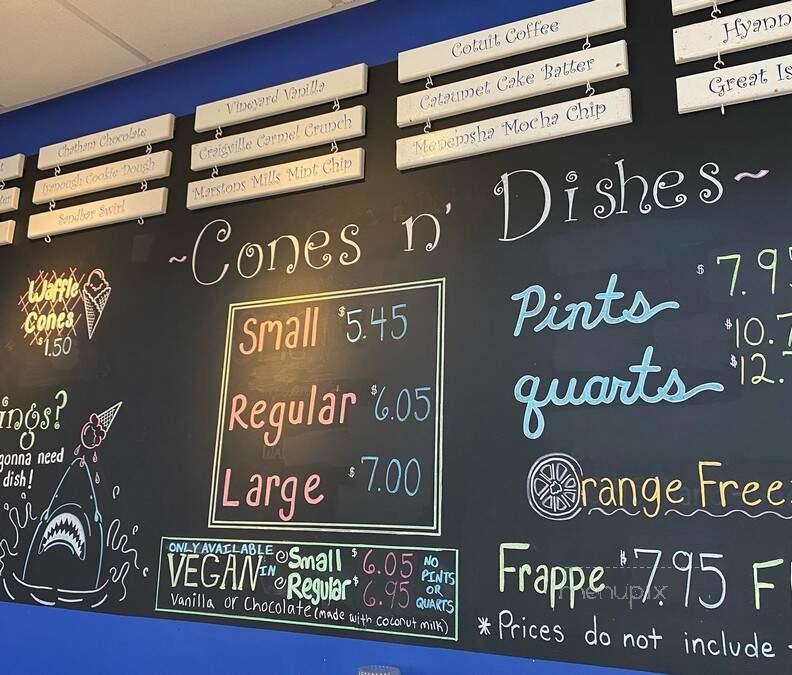 Chatham Chocolate
Iyanough Cookie Dough
Sandbar Swirl
Vineyard Vanilla
Craigville Carmel Crunch
Marstons Mills Mint Chip
Cotuit Coffee
Cataumet Cake Batter
Menemsha Mocha Chip
Hyann
Great Is
~Cones n' Dishes~
Waffle
Cones
$1.50
ings?
gonna need
dish!
Small $5.45
Regular $6.05
Large $7.00
Pints $7.95
$10.7
quarts $12.
Orange Freez
ONLY AVAILABLE IN
VEGAN
Small $6.05
Regular $6.95
NO
PINTS
OR
QUARTS
Vanilla or Chocolate (made with coconut milk)
Frappe $7.95 Fl
menupix
*Prices do not include